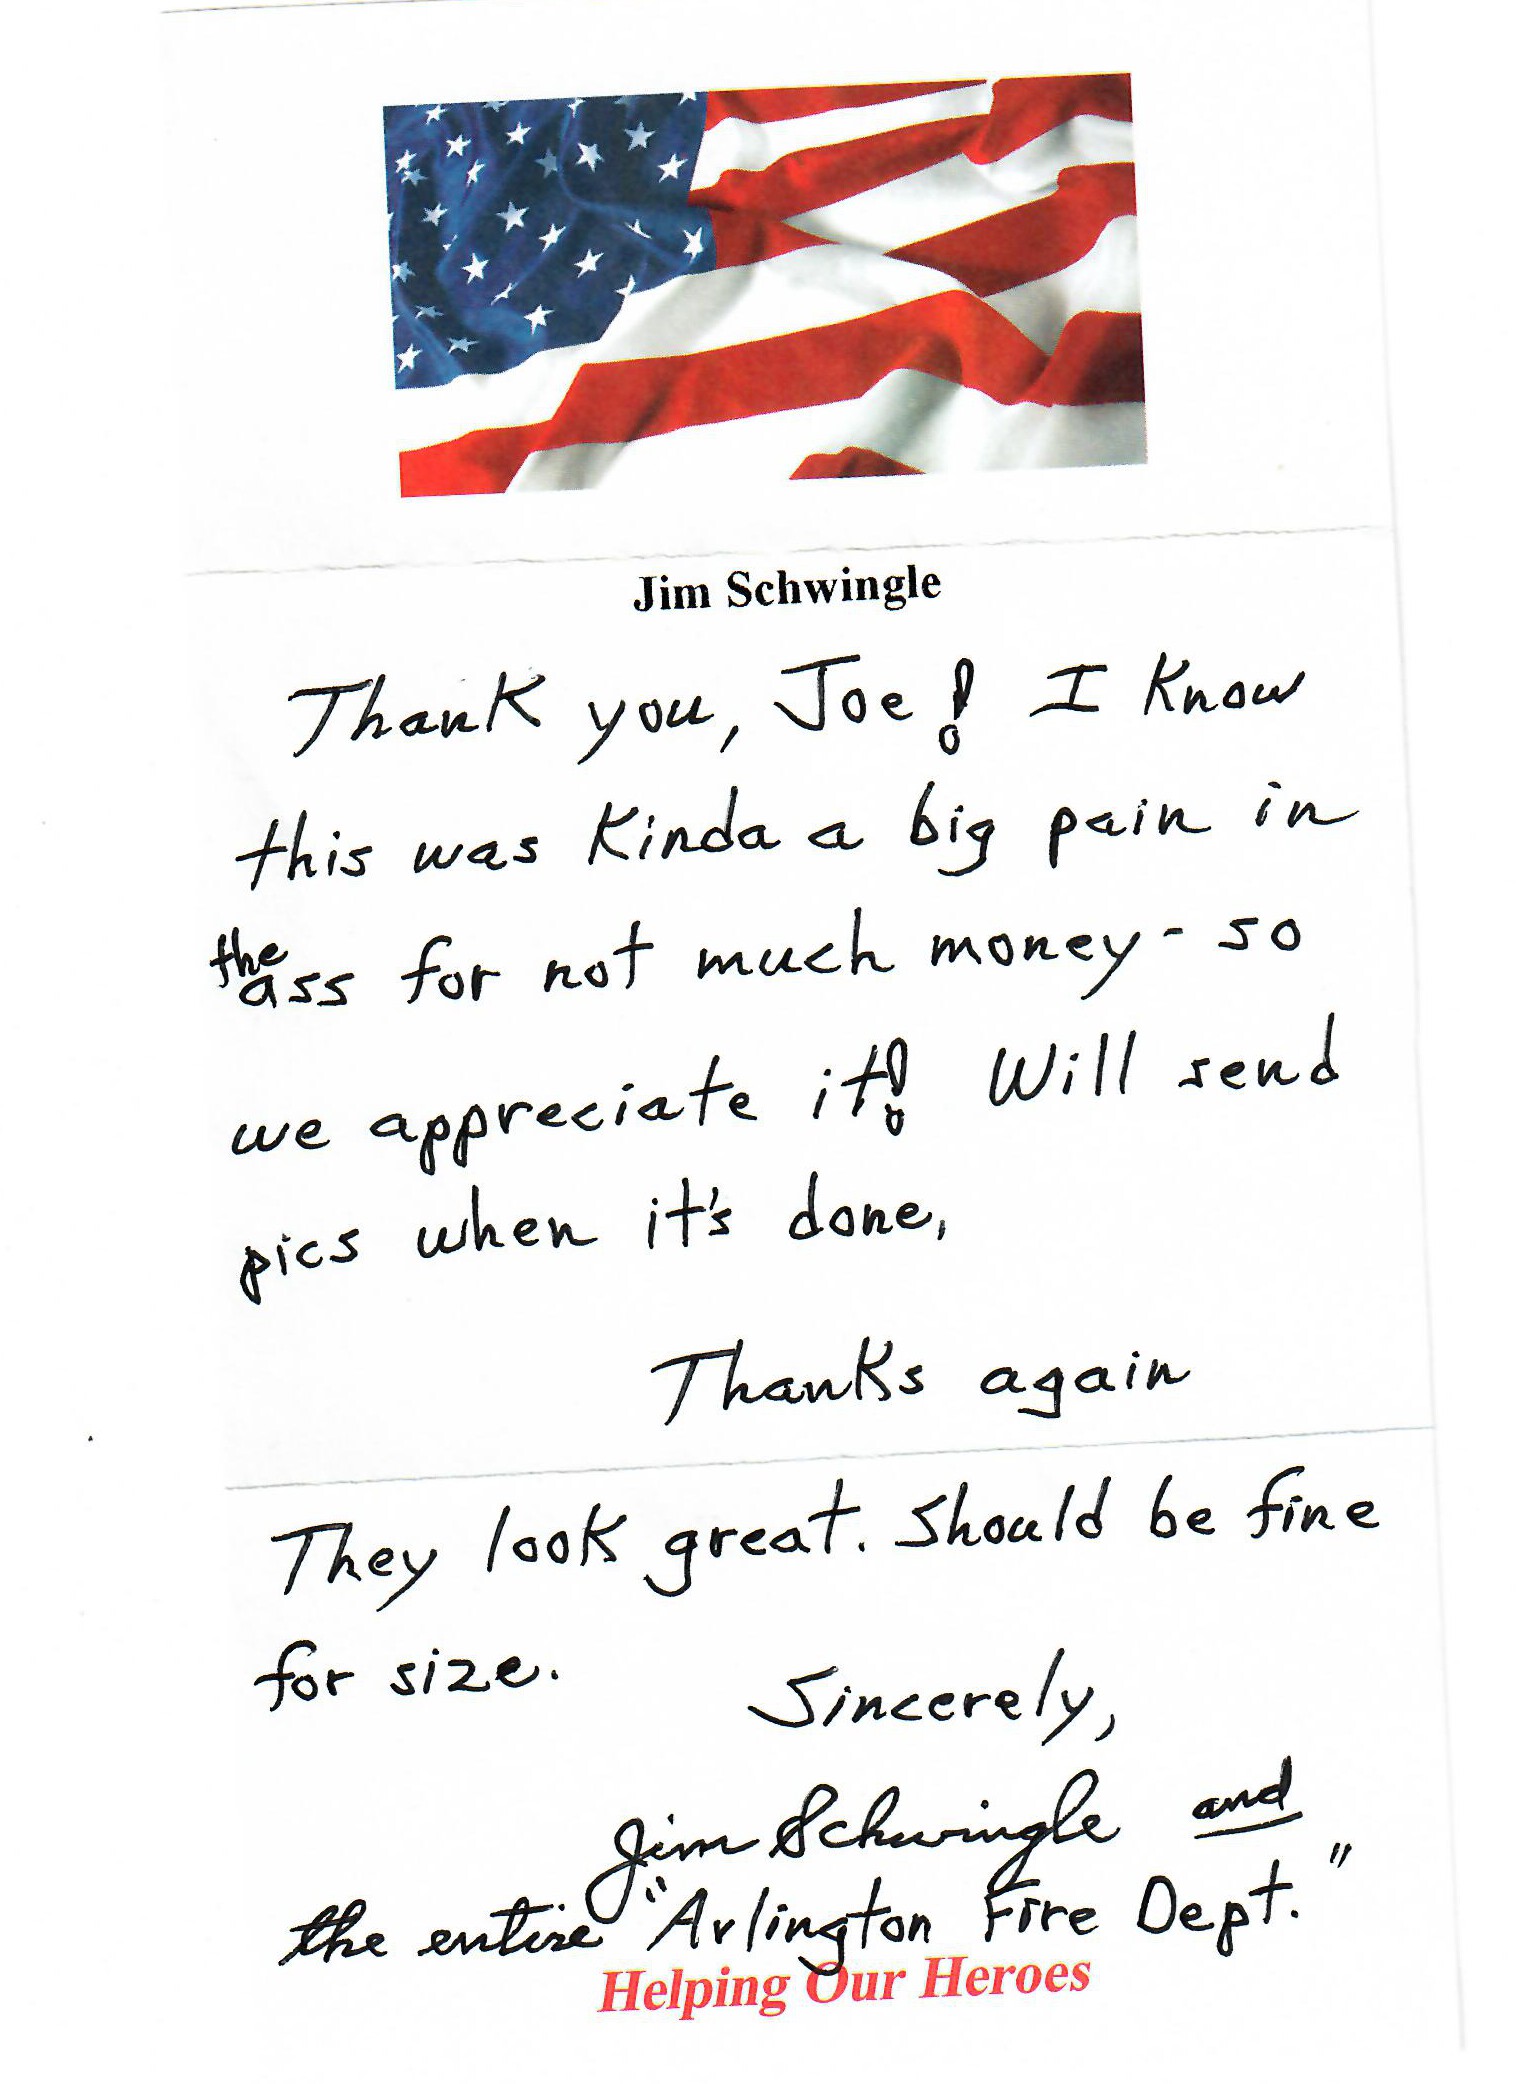 Jim Schwingle
Thank you, Joe! I know
this was kinda a big pain in
the ass for not much money - so
we appreciate it! Will send
pics when it's done,
Thanks again
They look great. Should be fine
for size.
Sincerely,
Jim Schwingle and
the entire "Arlington Fire Dept."
Helping Our Heroes